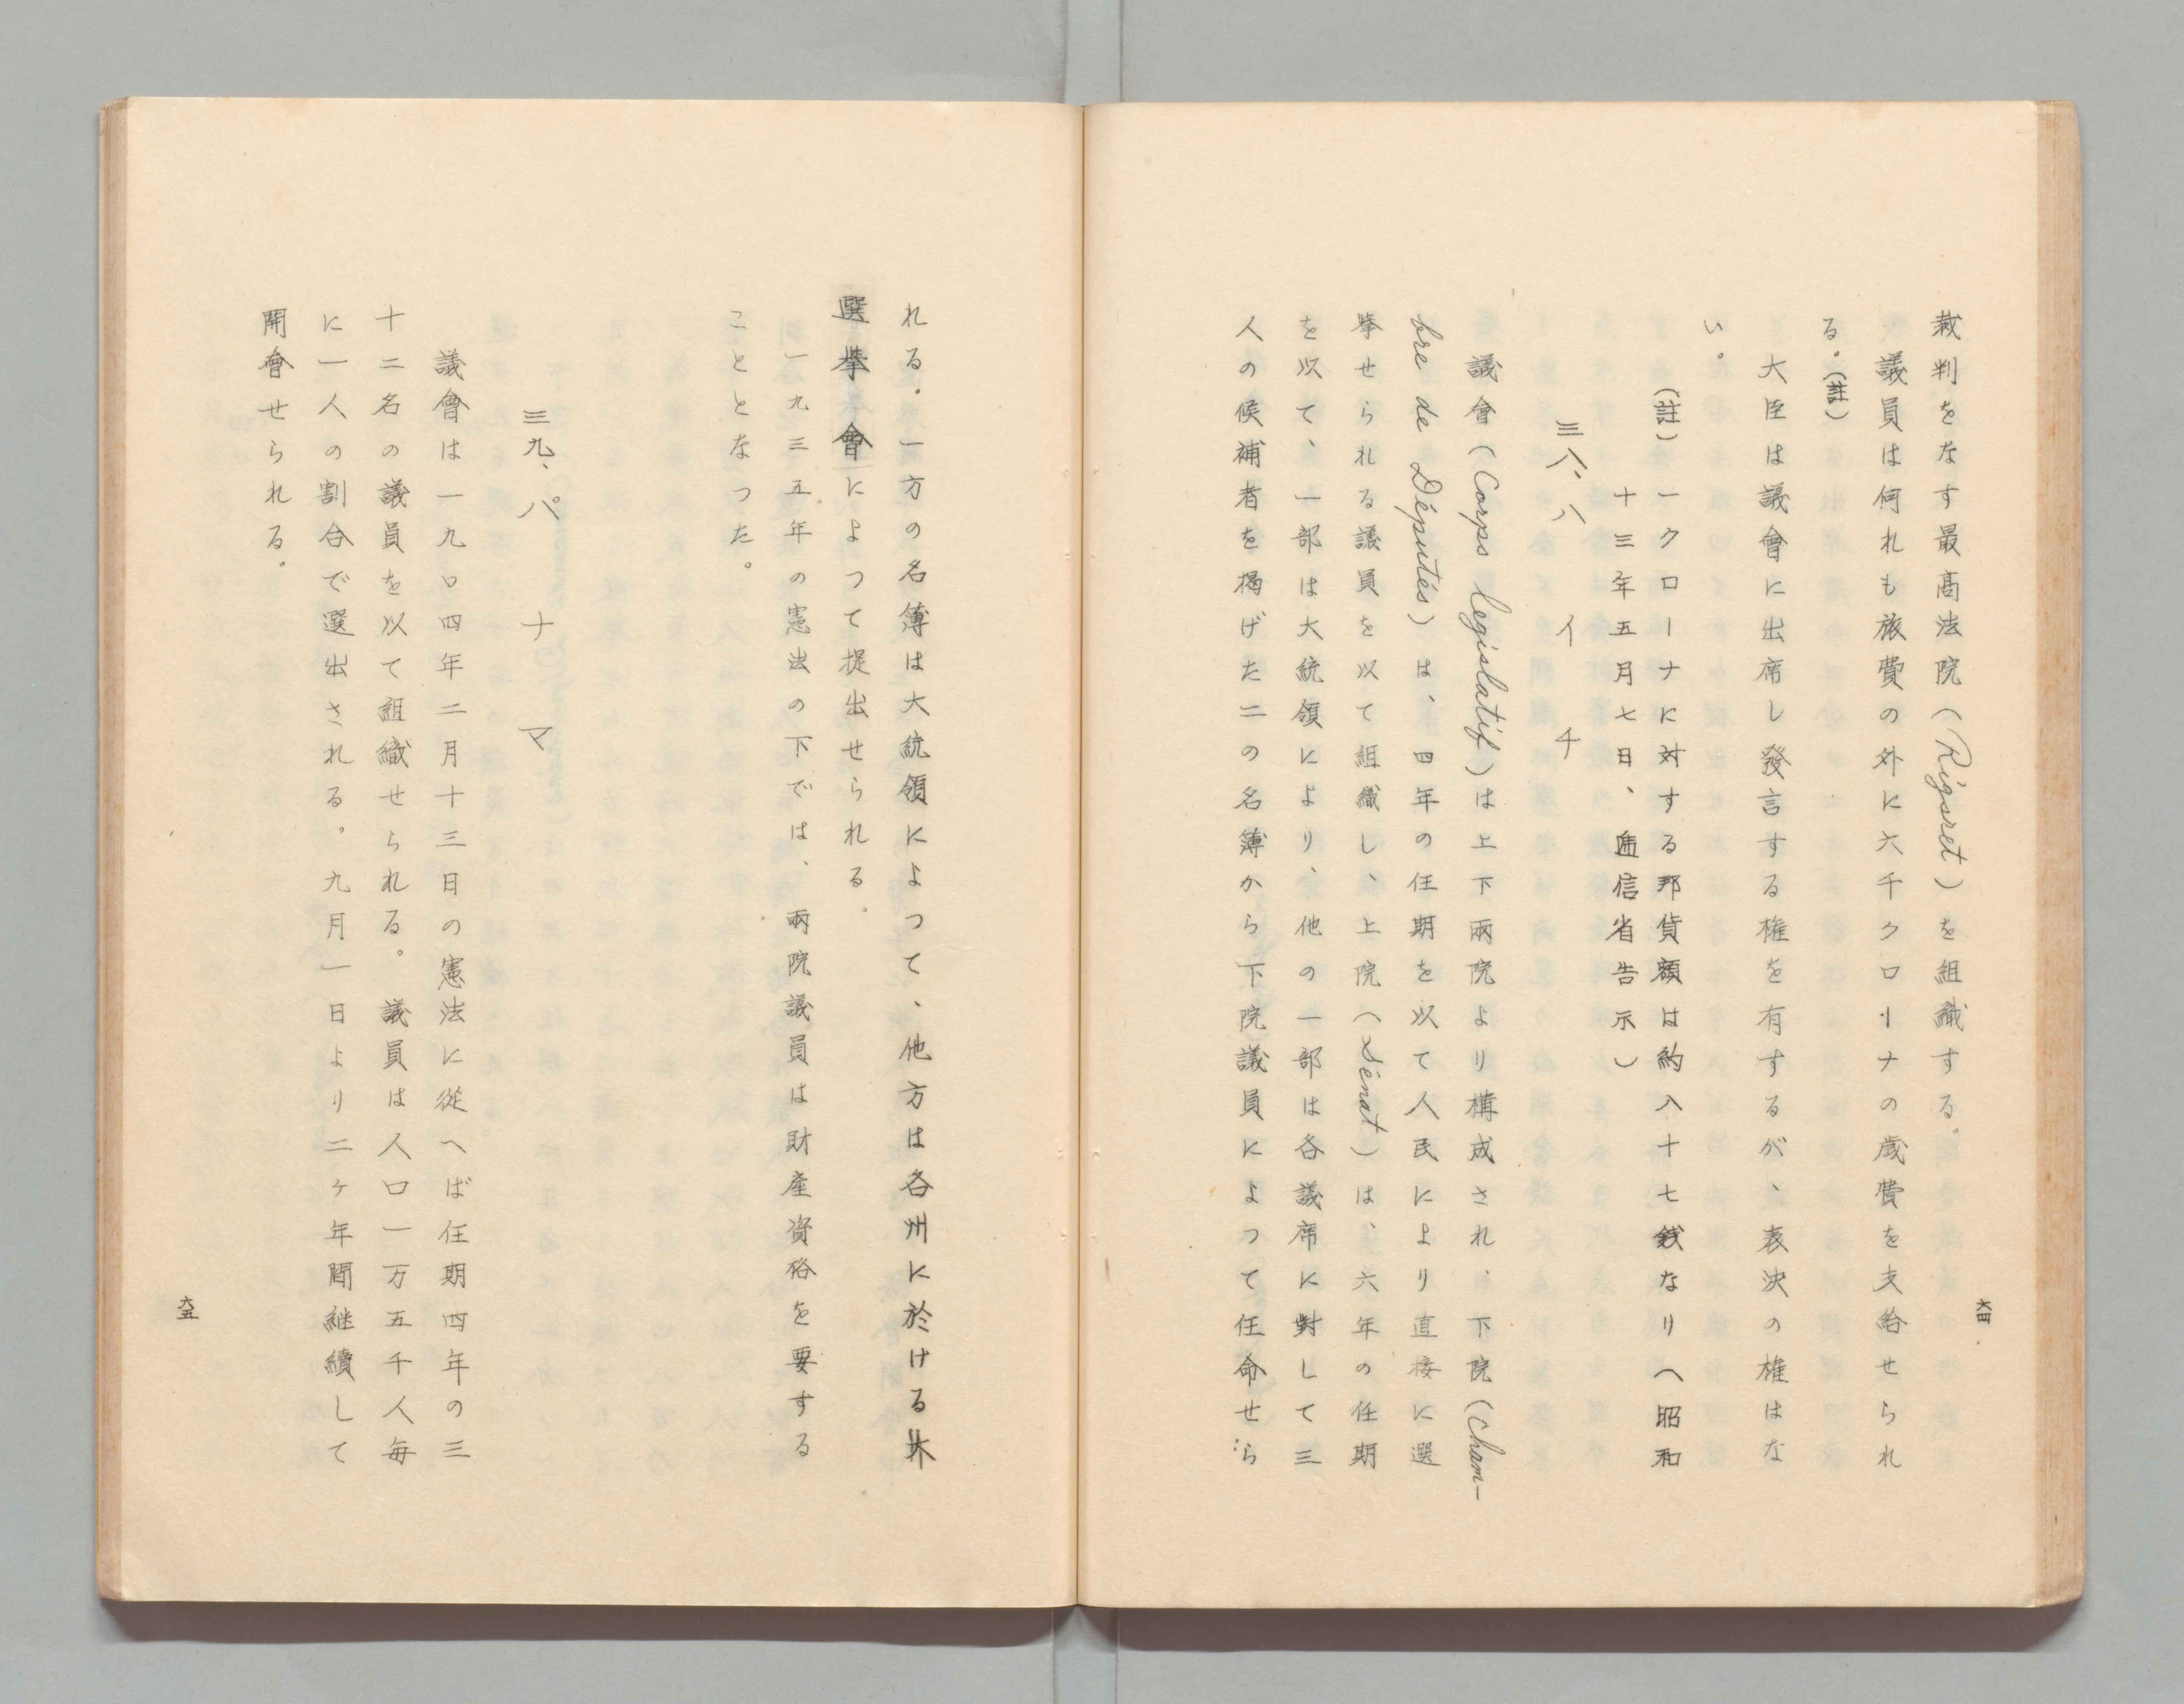 裁判をなす最髙法院(Rigsret)を組織する。
議員は何れも旅費の外に六千クローナの歳費を支給せられ
る。(註)
大臣は議會に出席し發言する権を有するが、表決の権はな
い。
(註)一クローナに対する邦貨額は約八十七銭なり(昭和
十三年五月七日、逓信省告示)
三八、ハイチ
議會(Corps législatif)は上下兩院より構成され、下院(Cham-
bre de Députés)は、四年の任期を以て人民により直接に選
挙せられる議員を以て組織し、上院(Sénat)は、六年の任期
を以て、一部は大統領により、他の一部は各議席に對して三
人の候補者を掲げた二の名簿から下院議員によつて任命せら
六四
れる。一方の名簿は大統領によつて、他方は各州に於ける
選挙會によつて提出せられる。
一九三五年の憲法の下では、兩院議員は財産資格を要する
こととなつた。
三九、パナマ
議會は一九〇四年二月十三日の憲法に從へば任期四年の三
十二名の議員を以て組織せられる。議員は人口一万五千人毎
に一人の割合で選出される。九月一日より二ヶ年間継續して
開會せられる。
六五